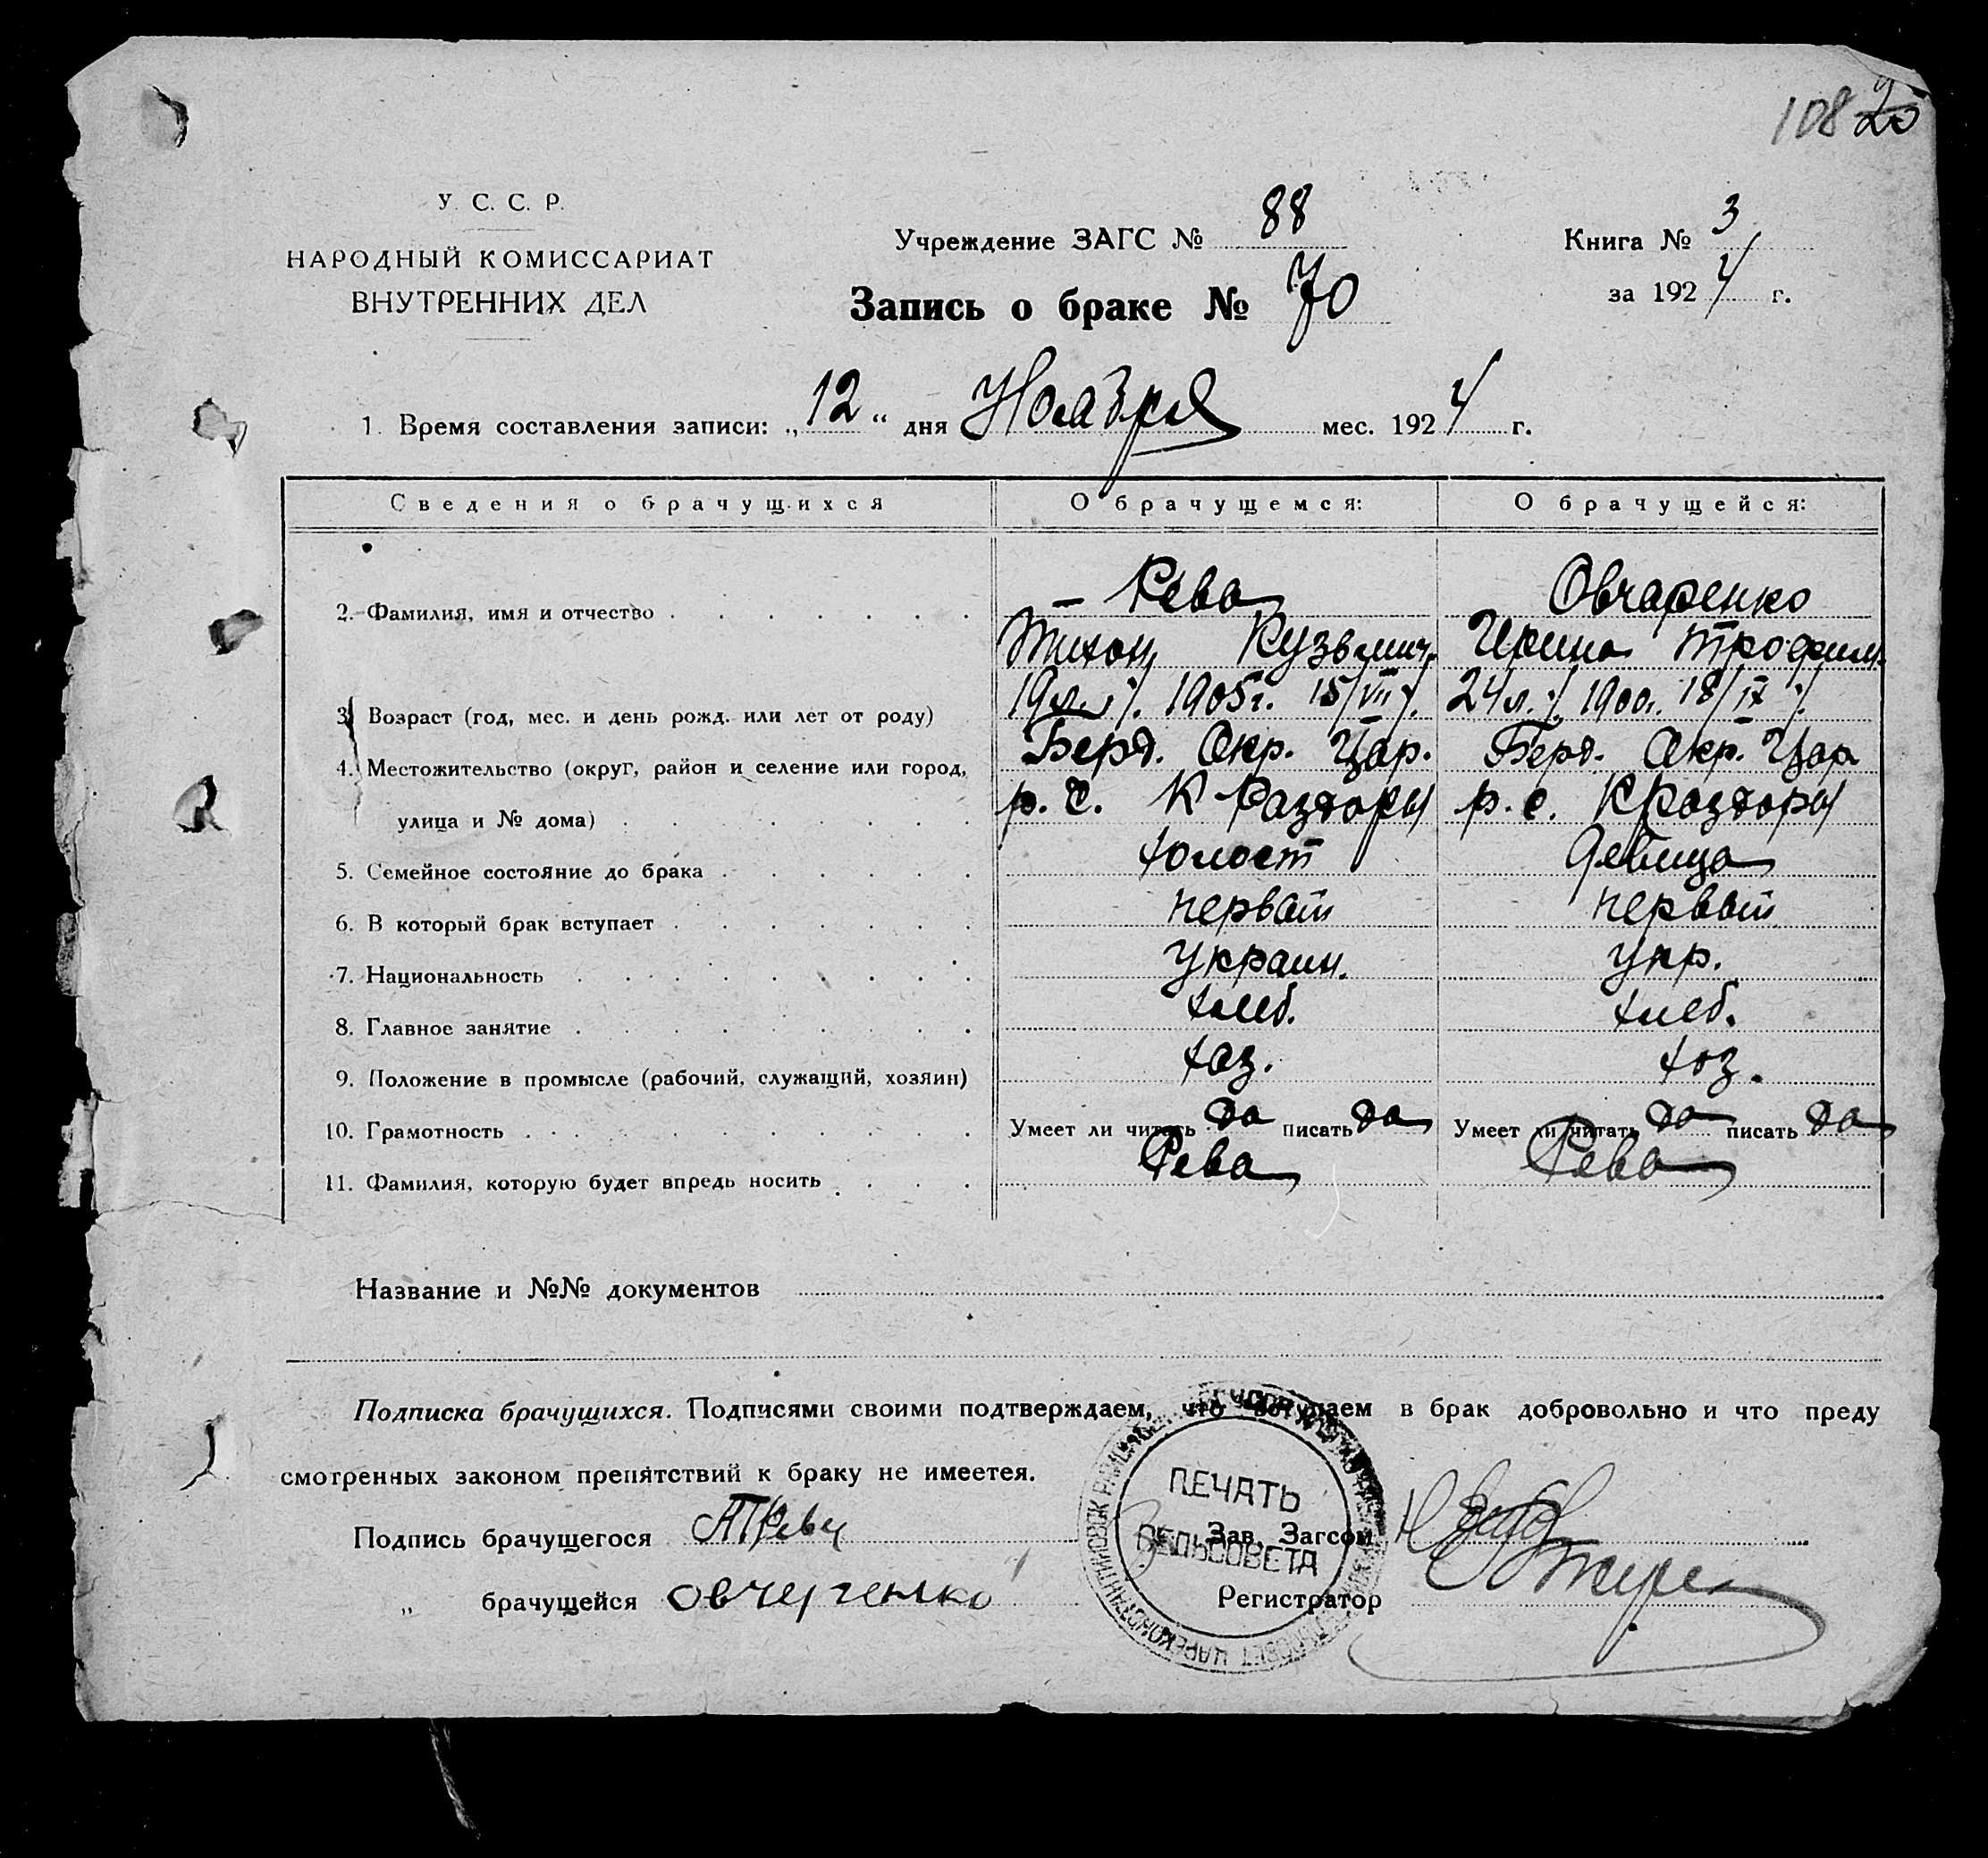 108 25
У. С. С. Р.
НАРОДНЫЙ КОМИССАРИАТ
ВНУТРЕННИХ ДЕЛ
Учреждение ЗАГС № 88
Запись о браке № 70
Книга № 3
за 1924 г.
1. Время составления записи: „12“ дня Ноября мес. 1924 г.
Сведения о брачущихся О брачущемся: О брачущейся:
2. Фамилия, имя и отчество Рева Овчаренко
Тихон Кузьмич. Ирина Трофим.
3. Возраст (год, мес. и день рожд. или лет от роду) 19 л. 1905 г. 15/VII 24 л. 1900 г. 18/IX
4. Местожительство (округ, район и селение или город, Берд. Окр. Цар. Берд. Окр. Цар
улица и № дома) р. с. К Раздоры р. с. К Раздоры
5. Семейное состояние до брака холост девица
6. В который брак вступает первый первый
7. Национальность Украин. Укр.
8. Главное занятие хлеб. хлеб.
9. Положение в промысле (рабочий, служащий, хозяин) хоз. хоз.
10. Грамотность Умеет ли читать да писать да Умеет ли читать да писать да
11. Фамилия, которую будет впредь носить Рева Рева
Название и №№ документов
Подписка брачущихся. Подписями своими подтверждаем, что вступаем в брак добровольно и что преду
смотренных законом препятствий к браку не имеетея.
Подпись брачущегося ТРева
Зав. Загсом
„ брачущейся овчеренко
Регистратор
ПЕЧАТЬ
СЕЛЬСОВЕТА